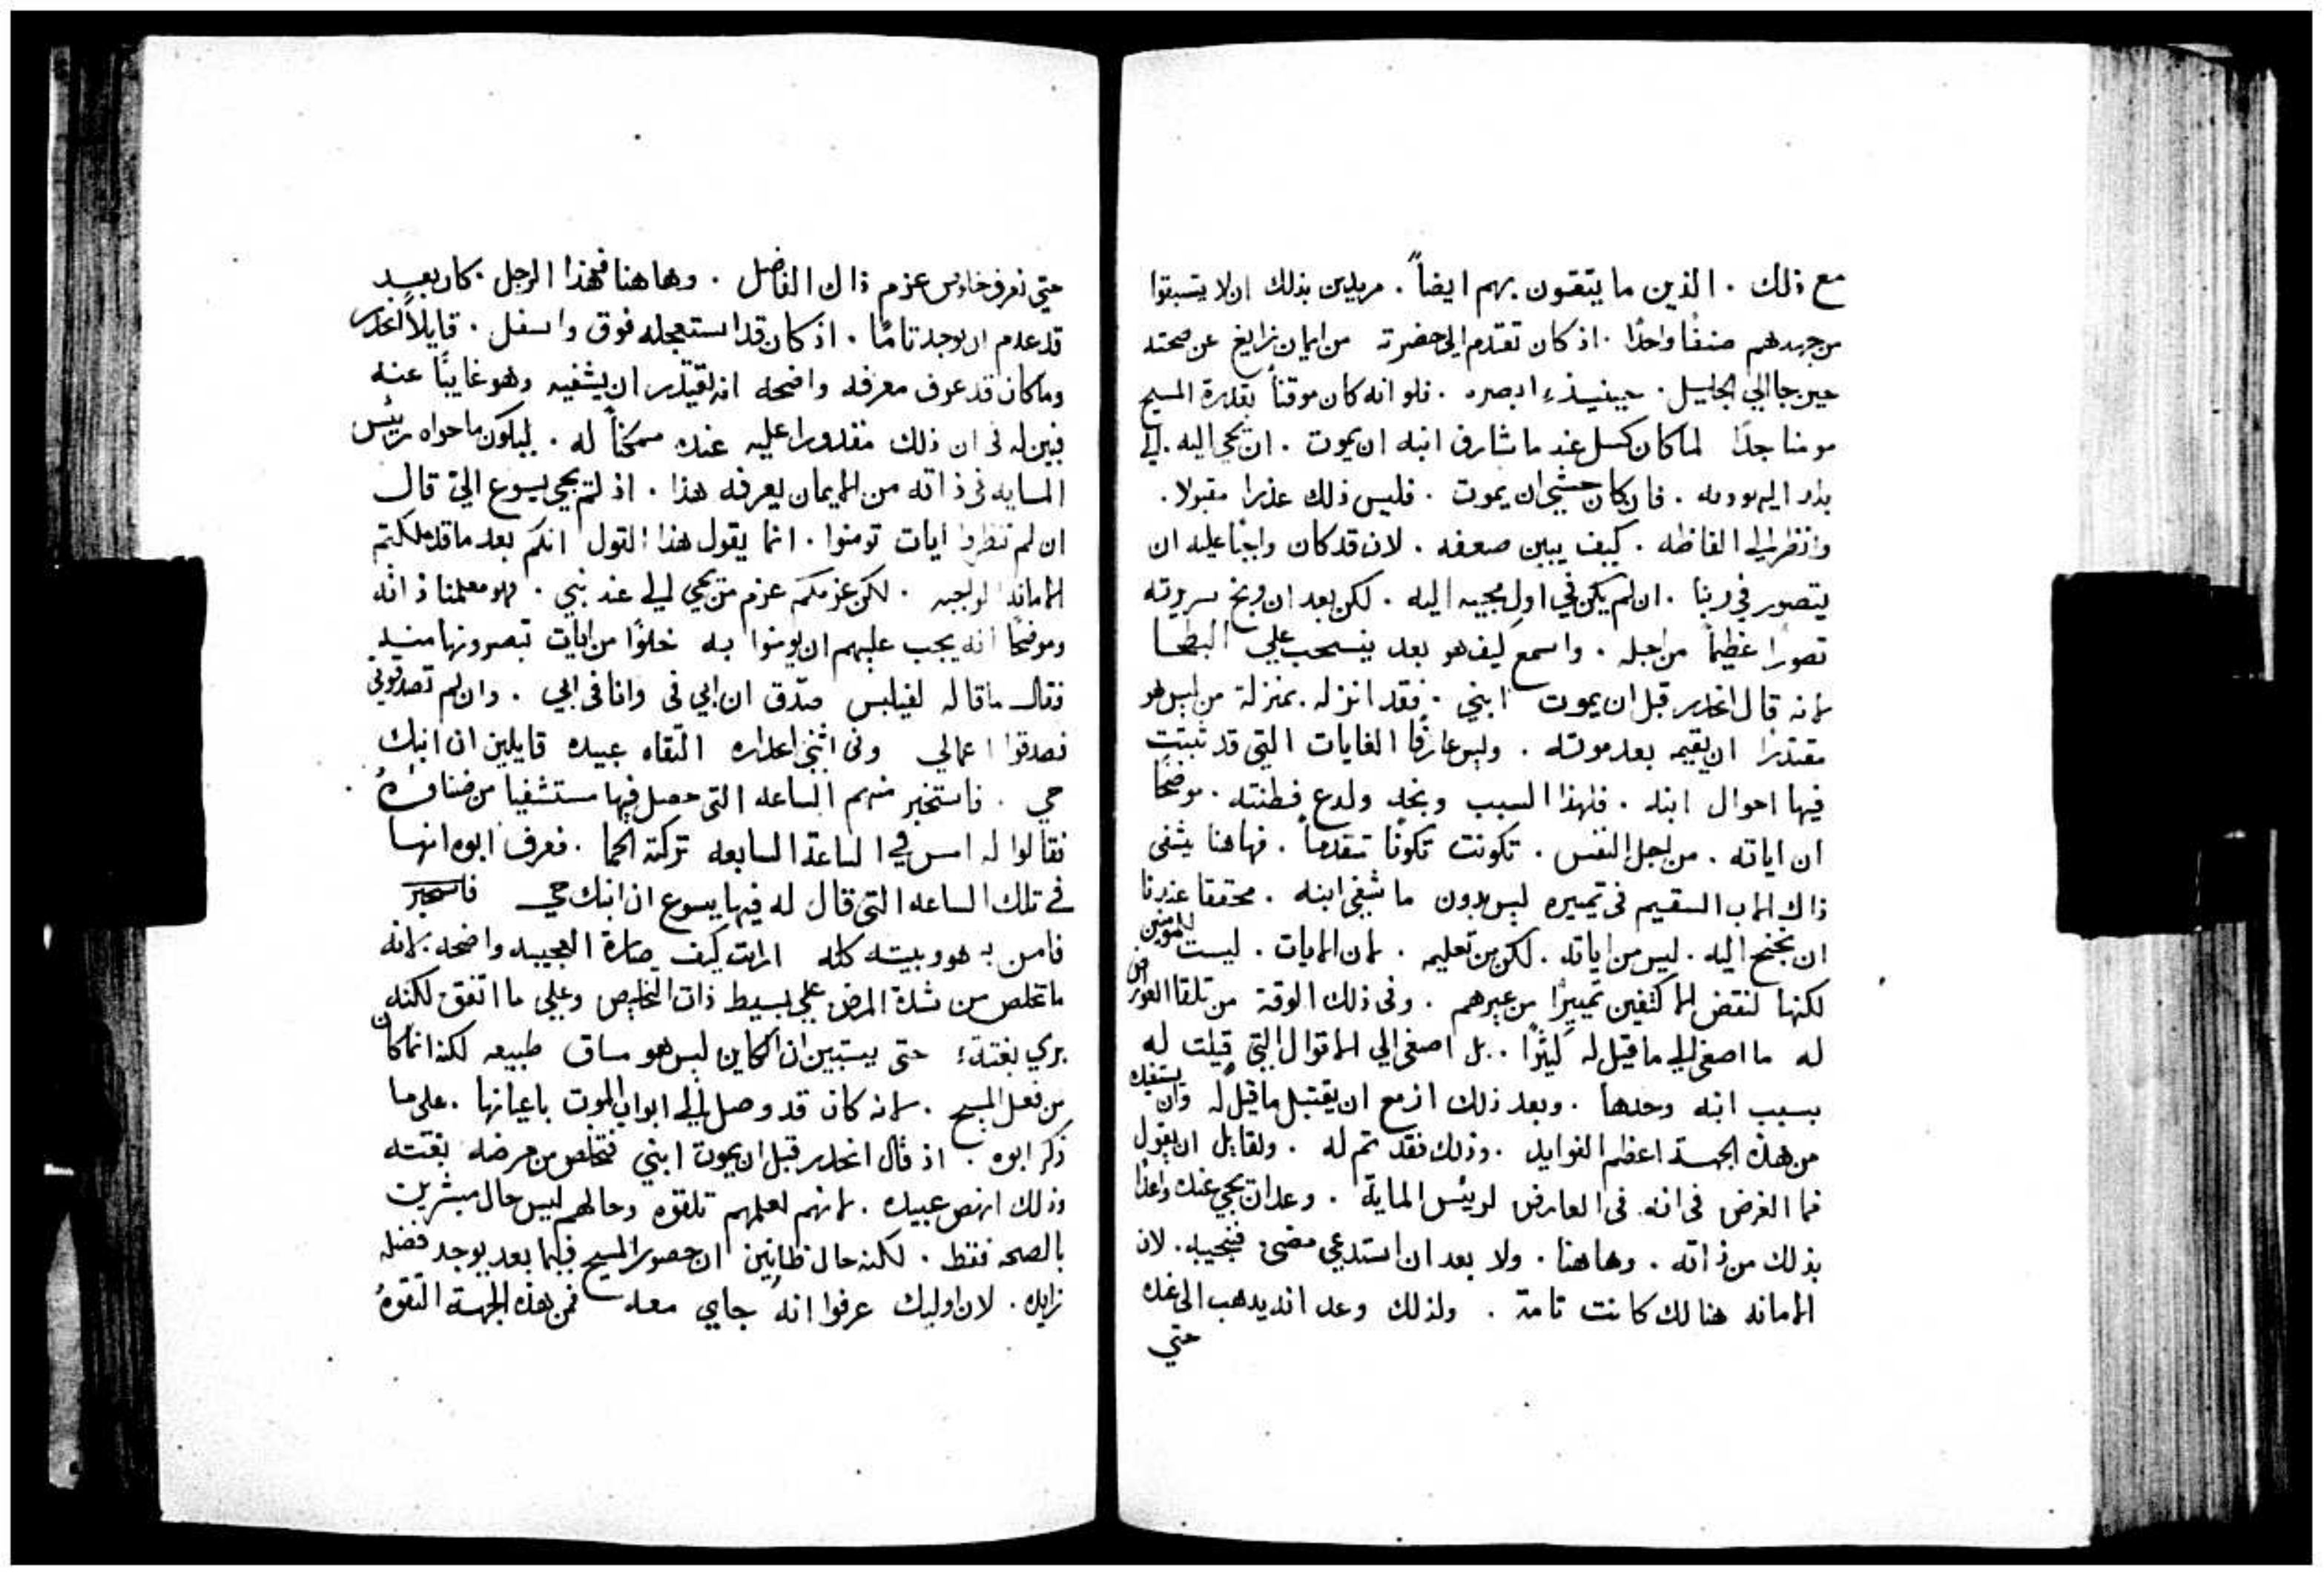 مع ذلك . الذين ما يتقون بهم ايضاً . مريدين بذلك ان لا يتسبقوا
من جهدهم صنفًا واحدًا . اذ كان تقدم الى حضرته من ايمان زايغ عن صحته
حين جا الي الجليل . حينيذٍ ابصره . فلو انه كان موقناً بقدرة المسيح
مومنا جدًا لما كان كسل عند ما شارف ابنه ان يموت . ان يجي اليه . الي
فان كان خشي ان يموت . فليس ذلك عذرا مقبولا .
وانظر الي الفاظه . كيف يبين ضعفه . لان قد كان واجبًا عليه ان
يتصور في ربنا . ان لم يكن في اول مجيه اليه . لكن بعد ان وبخ سريرته
تصورًا عظيمًا من اجله . واسمع كيف هو بعد ينسحب علي البطحا
لانه قال انحدر قبل ان يموت ابني . فقد انزله بمنزلة من ليس هو
مقتدرًا ان يقيمه بعد موته . وليس عارفًا الغايات التي قد تبتت
فيها احوال ابنه . فلهذا السبب وبخه ولدع فطنته . موضحًا
ان اياته . من اجل النفس . تكونت تكونًا متقدماً . فهاهنا يشفى
ذاك الاب السقيم فى تمييزه ليس بدون ما شفى ابنه . محققا عندنا
ان نجنح اليه . ليس من اياته . لكن من تعليمه . لان الايات . ليست للمومنين
لكنها لنقض المكتفين تمييزًا من غيرهم . وفى ذلك الوقة من تلقا العوارض
له ما اصغى الي ما قيل له كثيرًا . بل اصغى الي الاقوال التي قيلت له
بسبب ابنه وحدها . وبعد ذلك ازمع ان يقتبل ما قيل له وان يستفيد
من هذه الجهة اعظم الفوايد . وذلك فقد تم له . ولقايل ان يقول
فما الغرض فى انه فى العارض لرييس الماية . وعد ان يجي عنده واعدًا
بذلك من ذاته . وهاهنا . ولا بعد ان استدعي مضى فنجيبه . لان
الامانه هنالك كانت تامة . ولذلك وعد انه يدهب الى عنده
حتي
حتي نعرف خاوص عزم ذاك الفاضل . وهاهنا فهذا الرجل كان بعيد
قد عدم ان يوجد تامًا . اذ كان قد استعجله فوق واسفل . قايلاً انحدر
وما كان قد عرف معرفه واضحه انه يقتدر ان يشفيه وهو غايبًا عنه
فبين له فى ان ذلك مقدورا عليه عنده ممكناً له . ليكون ما حواه رييس
المايه فى ذاته من الايمان يعرفه هذا . اذ لم يجي يسوع اليه قال
ان لم تنظروا ايات تومنوا . انما يقول هذا القول انكم بعد ما قد ملكتم
الامانه الواجبه . لكن عزمكم عزم من يجي الي عند نبي . وهو معلمنا ذاته
وموضحًا انه يجب عليهم ان يومنوا به خلوًا من ايات تبصرونها منيه
فقال ما قاله لفيلبس صدق ان ابي فى وانا فى ابي . وان لم تصدقوني
فصدقوا اعمالي وفى اثنى اعداره التقاه عبيده قايلين ان ابنك
حي . فاستخبر منهم الساعه التى حصل فيها مستشفيا من ضنا
فقالوا له امس في الساعة السابعه تركته الحما . فعرف ابوه انها
فى تلك الساعه التى قال له فيها يسوع ان ابنك حي
فامن به هو وبيته كله ارايت كيف صارة العجيبه واضحه . لانه
ما تخلص من شدة المرض علي بسيط ذات التخليص وعلي ما اتفق لكنه
بري بغتةً حتى يستبين ان الكاين ليس هو مساق طبيعه لكنه انما كان
من فعل المسيح . لانه كان قد وصل الى ابواب الموت باعيانها . على ما
ذكر ابوه . اذ قال انحدر قبل ان يموت ابني فتخلص من مرضه بغتته
وذلك انهض عبيده . لانهم لعلمهم تلقوه وحالهم ليس حال مبشرين
بالصحه فقط . لكنه حال ظانين ان حضور المسيح فيما بعد يوجد فضله
زايده . لان اوليك عرفوا انه جاي معه فمن هذه الجهة التقوهُ